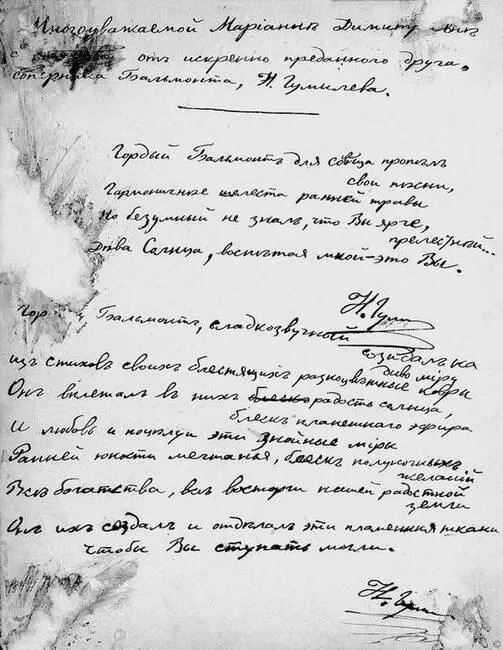 Многоуважаемой Маріаннѣ Димитр
отъ искренно преданнаго друга,
соперника Бальмонта, Н. Гумилева.
Гордый Бальмонтъ для солнца пропѣлъ
свои пѣсни,
Гармоничнѣе шелеста ранней травы
Но безумный не зналъ, что Вы ярче,
прелестнѣй...
Дѣва Солнца, воспѣтая мной – это Вы.
Н. Гум
Гор Бальмонтъ, сладкозвучный
созидалъ на
диво міру
изъ стиховъ своихъ блестящихъ разноцвѣтные ковры
Онъ вплеталъ въ нихъ радость солнца,
блескъ пламеннаго эфира
И любовь и поцѣлуи эти знойные міры
Ранней юности мечтанья, блескъ полуночныхъ
желаній
Всѣ богатства, всѣ восторги нашей радостной
земли
Онъ ихъ создалъ и отдѣлалъ эти пламенныя ткани
Чтобы Вы ступать могли.
Н. Гум